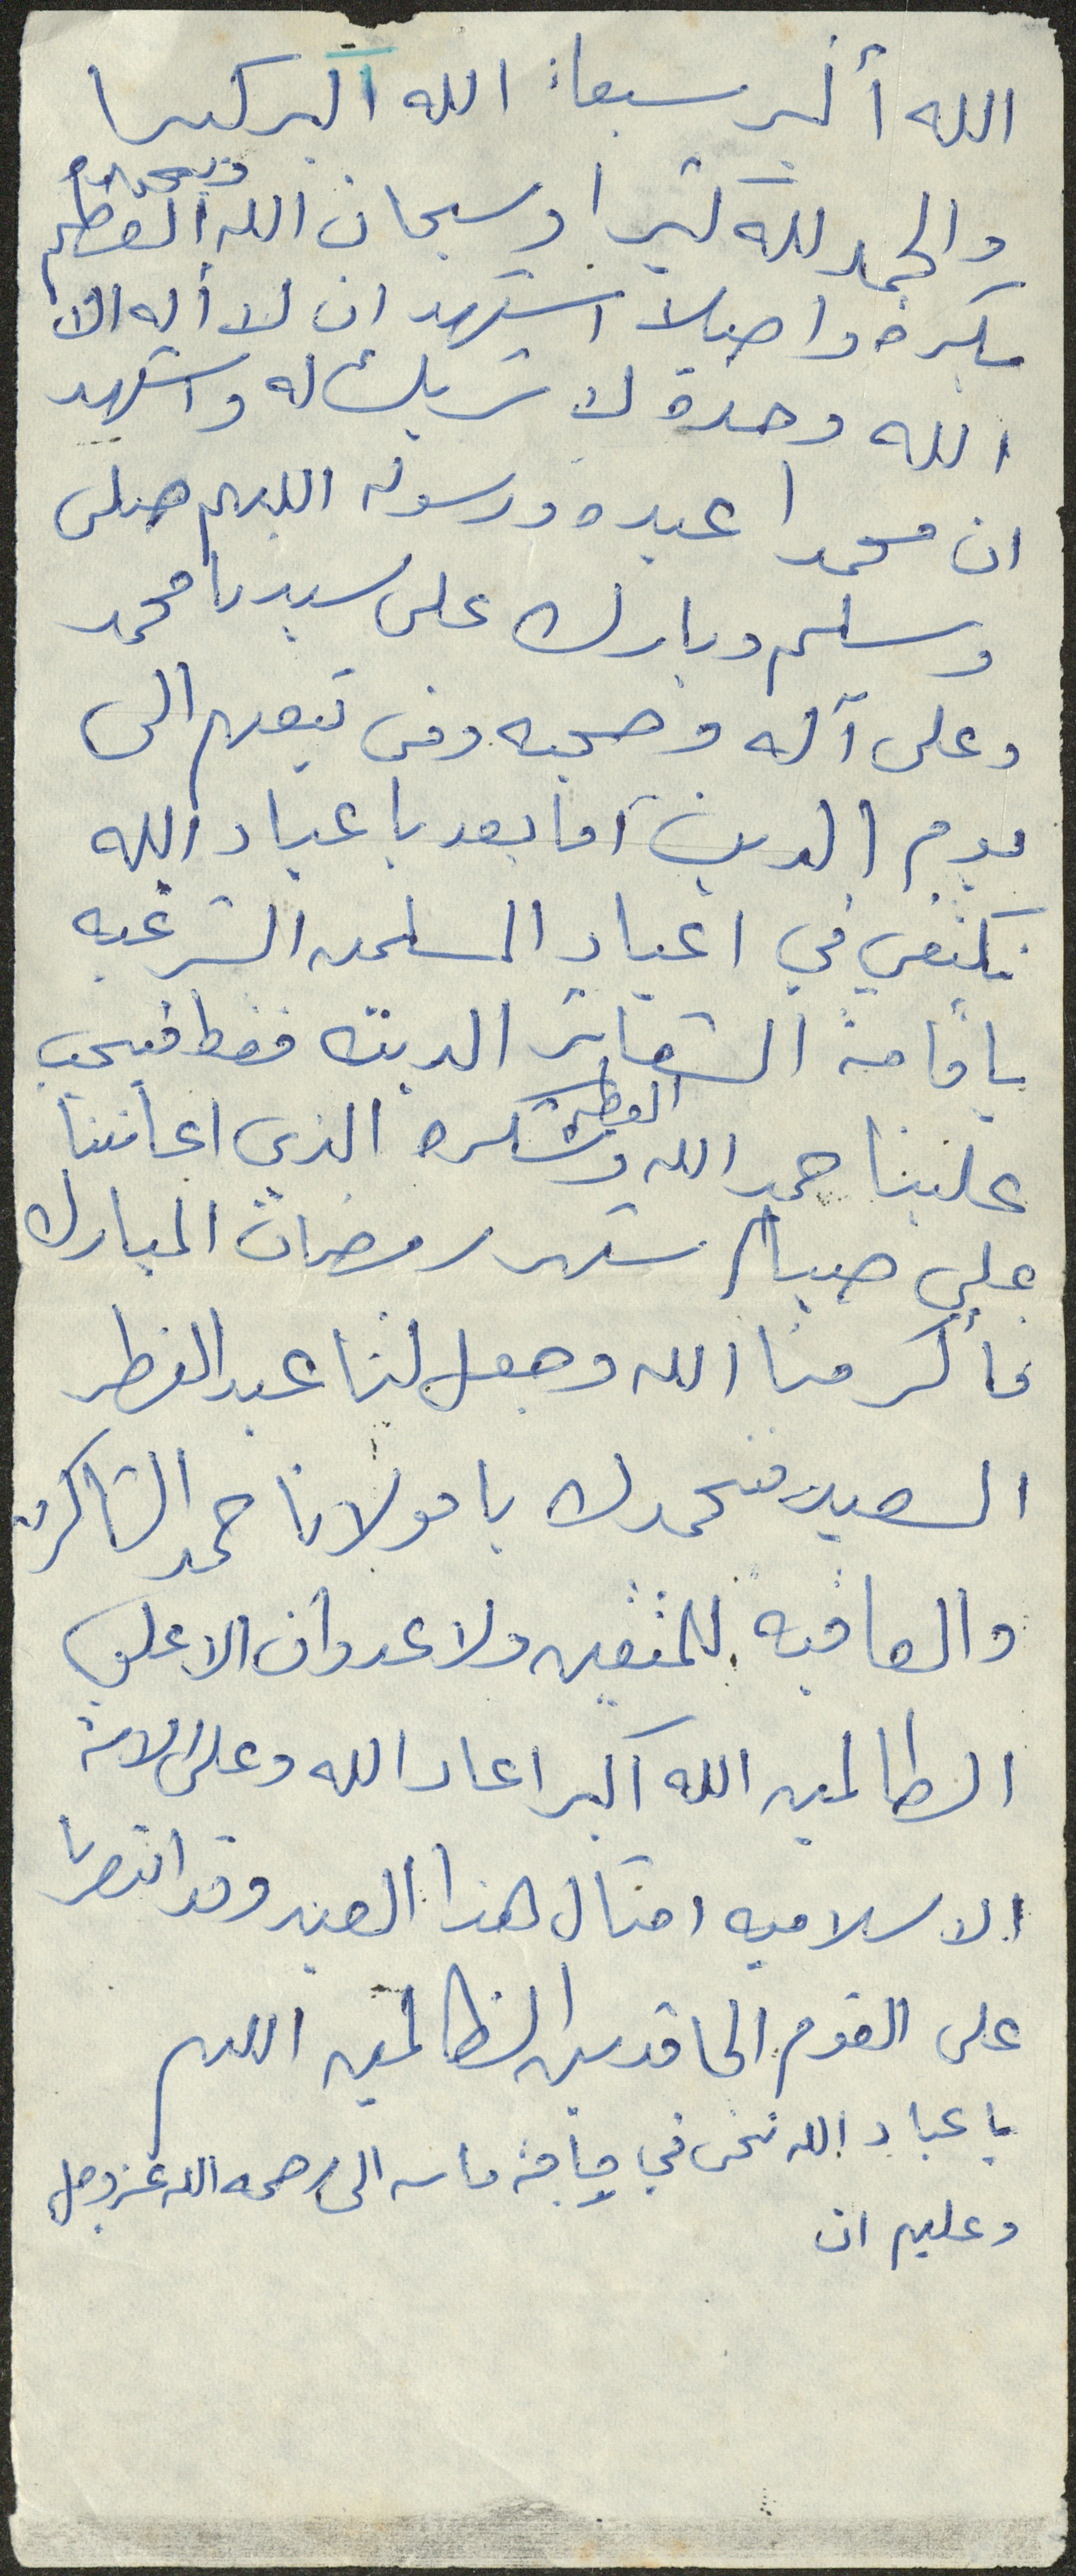 الله أكبر سبعاً: الله اكبر كبيرا
والحمد لله كثيرا وسبحان الله العظيم وبحمده
بكره واصيلا اشهد ان لا أله الا
الله وحدة لا شريك له واشهد
ان محمدا عبده ورسوله اللهم صلى
وسلم وبارك على سيدنا محمد
وعلى آله وصحبه ومن تبعهم الى
يوم الدين اما بعد يا عباد الله
نكتفي في اعياد المسلمين الشرعيه
باقامة الشعائر الدينيه فقط فيجب
علينا حمد الله العظيم وشكره الذي اعاننا
علي صيام شهر رمضان المبارك
فأكرمنا الله وجعل لنا عيد الفطر
السعيد فنحمدك يا مولانا حمد الشاكرين
والعاقبه للمتقين ولا عدوان الا علي
الظالمين الله اكبر اعاد الله وعلى الامة
الاسلاميه امثال هذا العيد وقد انتصرنا
على القوم الحاقدين الظالمين اللهم
يا عباد الله نحن في حاجة ماسه الى رحمه الله عز وجل
وعليهم ان